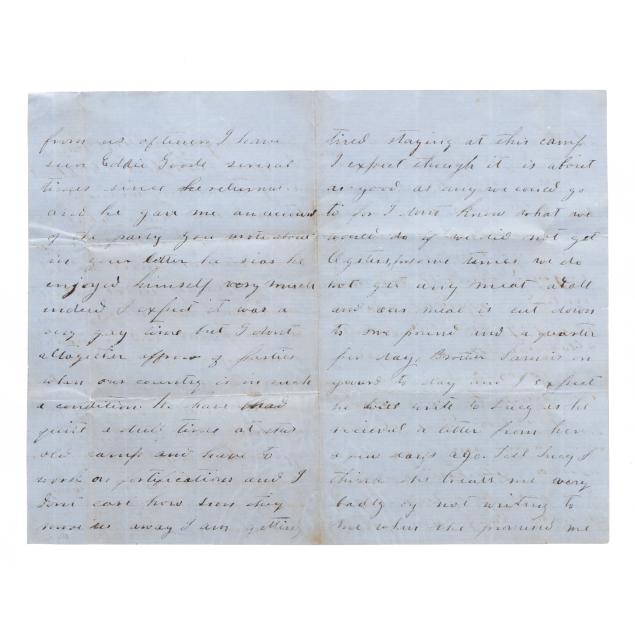 from us oftener I have
seen Eddie Goode several
times since he returned
and he gave me an account
of the party you wrote about
in your letter he sias he
enjoyed himself very much
indeed I expect it was a
very gay time but I dont
altogether approve of parties
when our country is in such
a condition We have had
quiet a dull times at this
old camp and have to
work on fortifications and I
dont care how soon they
move us away I am getting
tired staying at this camp
I expect though it is about
as good as any we could go
to for I dont know what we
would do if we did not get
Oysters, some times we do
not get any meat atall
and our meal is cut down
to one pound and a quarter
per day. Brother is on
guard to day and I expect
he will write to Lucy as he
recieved a letter from her
a few days ago. Tell Lucy I
think she treats me very
badly by not writing to
me when she promised me